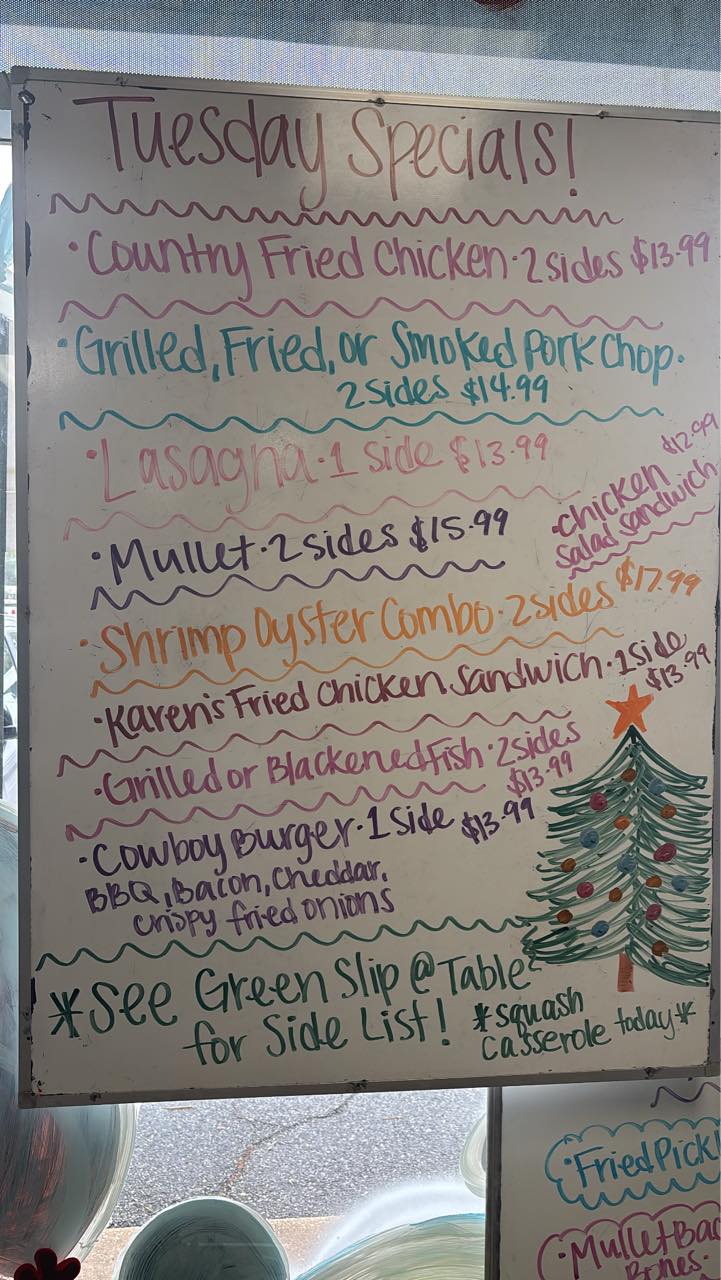 Tuesday Specials!
·Country Fried Chicken·2 sides $13.99
·Grilled, Fried, or Smoked Pork Chop·
2 sides $14.99
·Lasagna·1 side $13.99
·Mullet·2 sides $15.99
$12.99
·chicken
salad sandwich
·Shrimp Oyster Combo·2 sides $17.99
·Karen's Fried Chicken Sandwich·1 side
$13.99
·Grilled or Blackened Fish·2 sides
$13.99
·Cowboy Burger·1 side $13.99
BBQ, Bacon, Cheddar,
crispy fried onions
*See Green Slip @ Table
for Side List!
*squash
casserole today*
·Fried Pickl
·Mullet Bac
Bones·